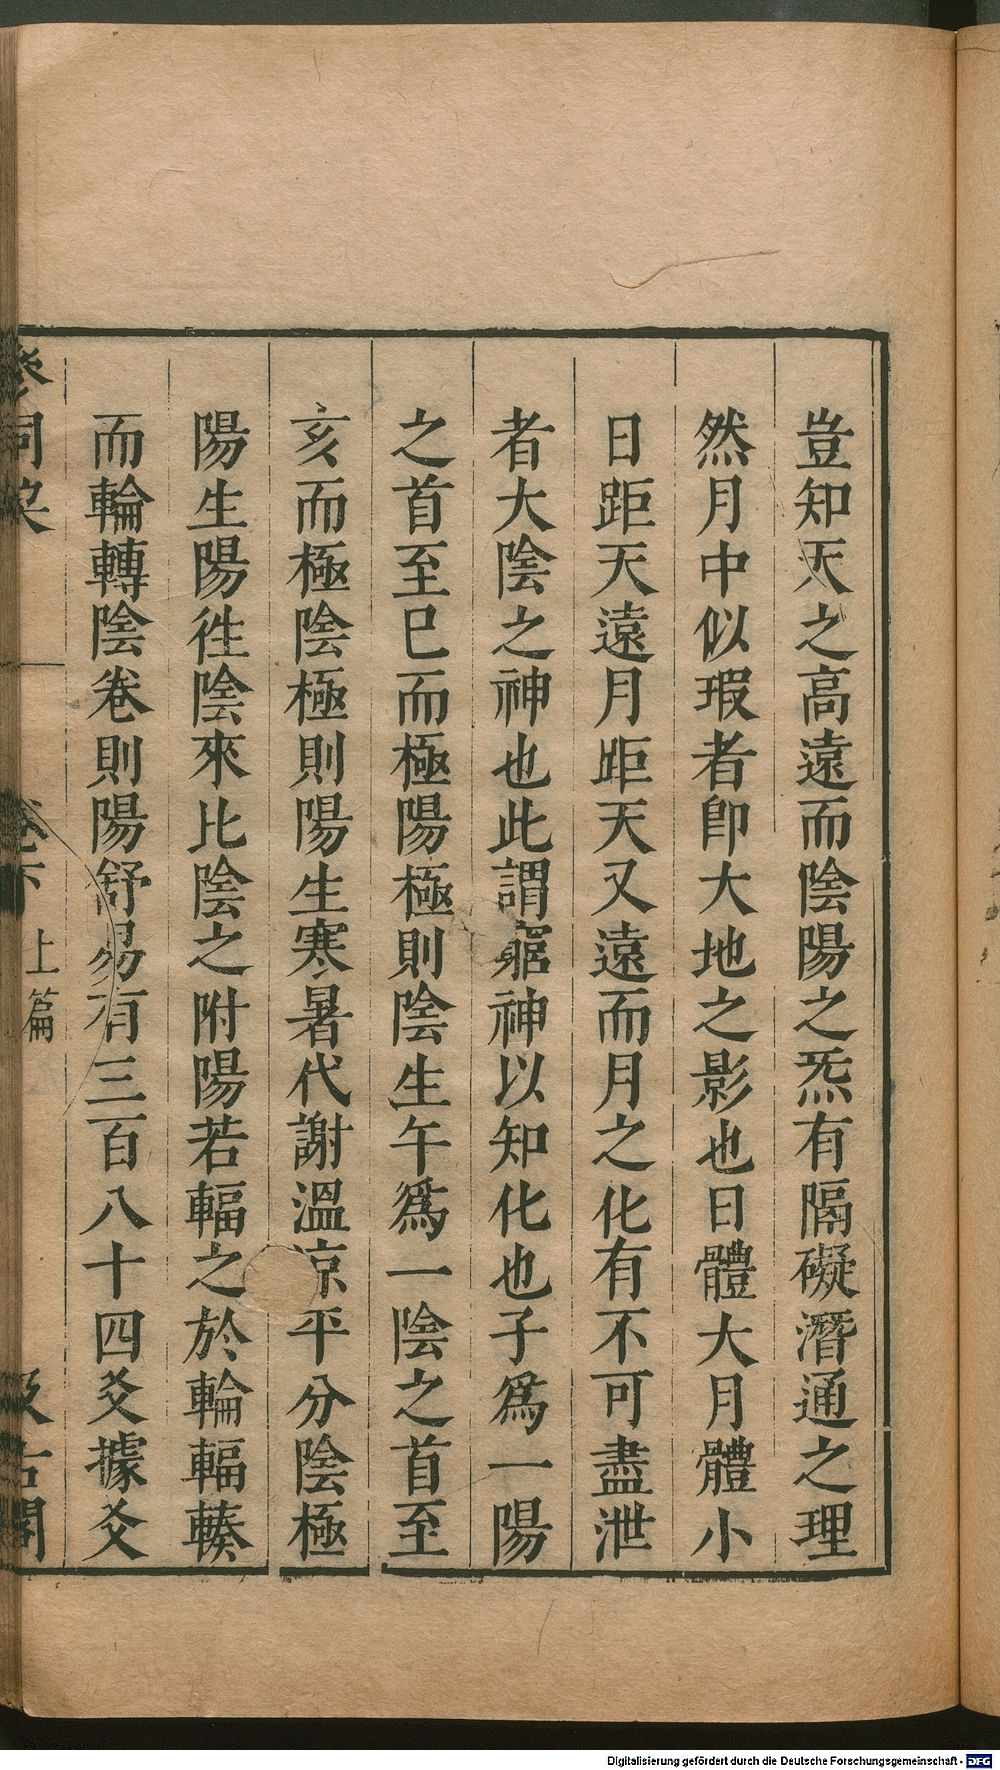 豈知天之高遠而陰陽之炁有隔礙潛通之理
然月中似瑕者卽大地之影也日體大月體小
日距天遠月距天又遠而月之化有不可盡泄
者大陰之神也此謂窮神以知化也子爲一陽
之首至巳而極陽極則陰生午爲一陰之首至
亥而極陰極則陽生寒暑代謝溫凉平分陰極
陽生陽徃陰來比陰之附陽若輻之於輪輻輳
而輪轉陰卷則陽舒易有三百八十四爻據爻
參同契 卷下 上篇 汲古閣
Digitalisierung gefördert durch die Deutsche Forschungsgemeinschaft - DFG